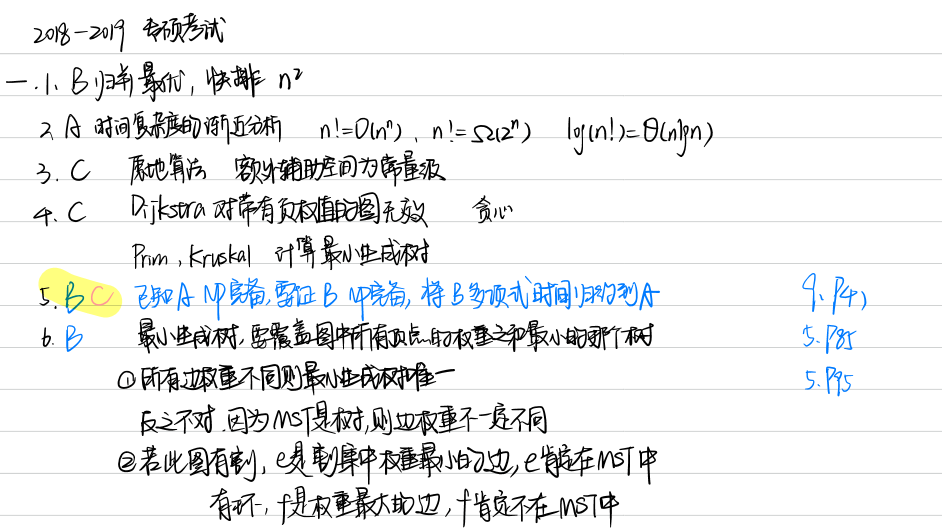 2018-2019 专硕考试
一.1、B 归并最优，快排 n²
2、A 时间复杂度的渐近分析 n!=O(nⁿ)，n!=Ω(2ⁿ) log(n!)=Θ(nlgn)
3. C 原地算法 额外辅助空间为常量级
4. C Dijkstra 对带有负权值的图无效 贪心
Prim，Kruskal 计算最小生成树
5. B C 已知A NP完备，要证B NP完备，将B多项式时间归约到A 9、P41
6. B 最小生成树，要覆盖图中所有顶点的权重之和最小的那个树 5.P85
①所有边权重不同则最小生成树唯一 5.P95
反之不对.因为MST是树，则边权重不一定不同
②若此图有割，e是割集中权重最小的边，e肯定在MST中
有环，f是权重最大的边，f肯定不在MST中